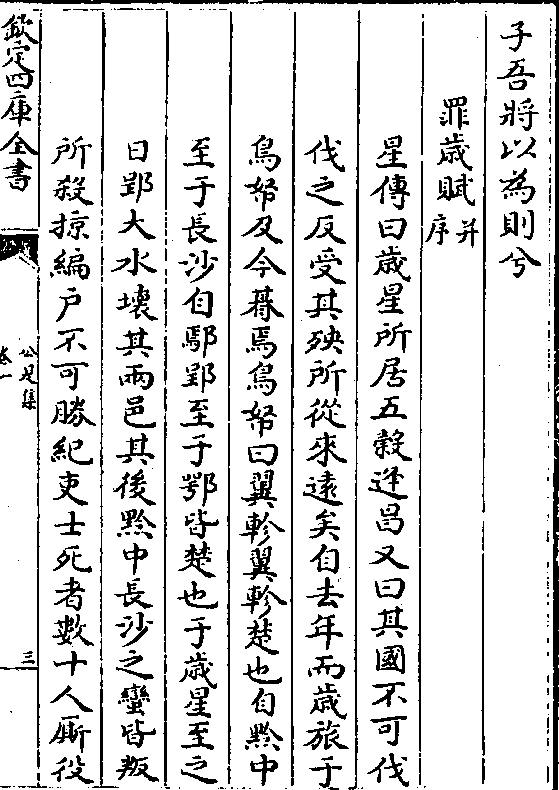 子吾將以為則兮
罪歲賦并序
星傳曰歲星所居五穀逢昌又曰其國不可伐
伐之反受其殃所從來遠矣自去年而歲旅于
鳥帑及今暮焉鳥帑曰翼軫翼軫楚也自黔中
至于長沙自鄢郢至于鄂皆楚也于歲星至之
日郢大水壊其兩邑其後黔中長沙之蠻皆叛
所殺掠編戶不可勝紀吏士死者數十人厮役
欽定四庫全書
公是集
卷一
三